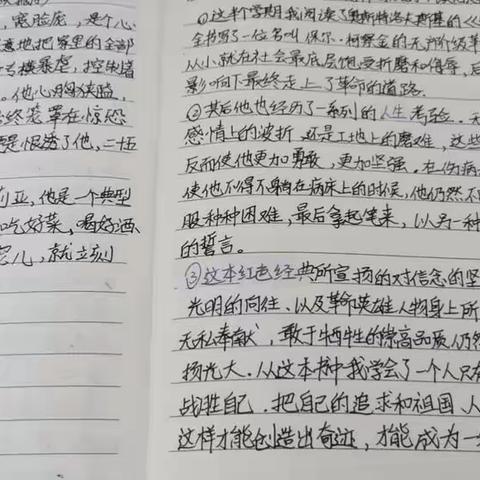 宽脸庞,是个心
意地把家里的全部
专横暴虐,控制着
他心胸狭隘,
终笼罩在惊恐
是恨透了他,二十五
莉亚,他是一个典型
吃好菜,喝好酒
就立刻
①这半个学期我阅读了奥斯特洛夫斯基的《
全书写了一位名叫保尔·柯察金的无产阶级革
从小就在社会最底层饱受折磨和侮辱,后
影响下最终走上了革命的道路.
②其后他也经历了一系列的人生考验.无
感情上的波折,还是工地上的磨难,这些
反而使他更加勇敢,更加坚强.在伤病
使他不得不躺在病床上的时候,他仍然不
服种种困难,最后拿起笔来,以另一种
的誓言。
③这本红色经典所宣扬的对信念的坚
光明的向往、以及革命英雄人物身上所
无私奉献,敢于牺牲的崇高品质仍然
扬光大.从这本书中我学会了一个人只有
战胜自己.把自己的追求和祖国、人
这样才能创造出奇迹,才能成为一